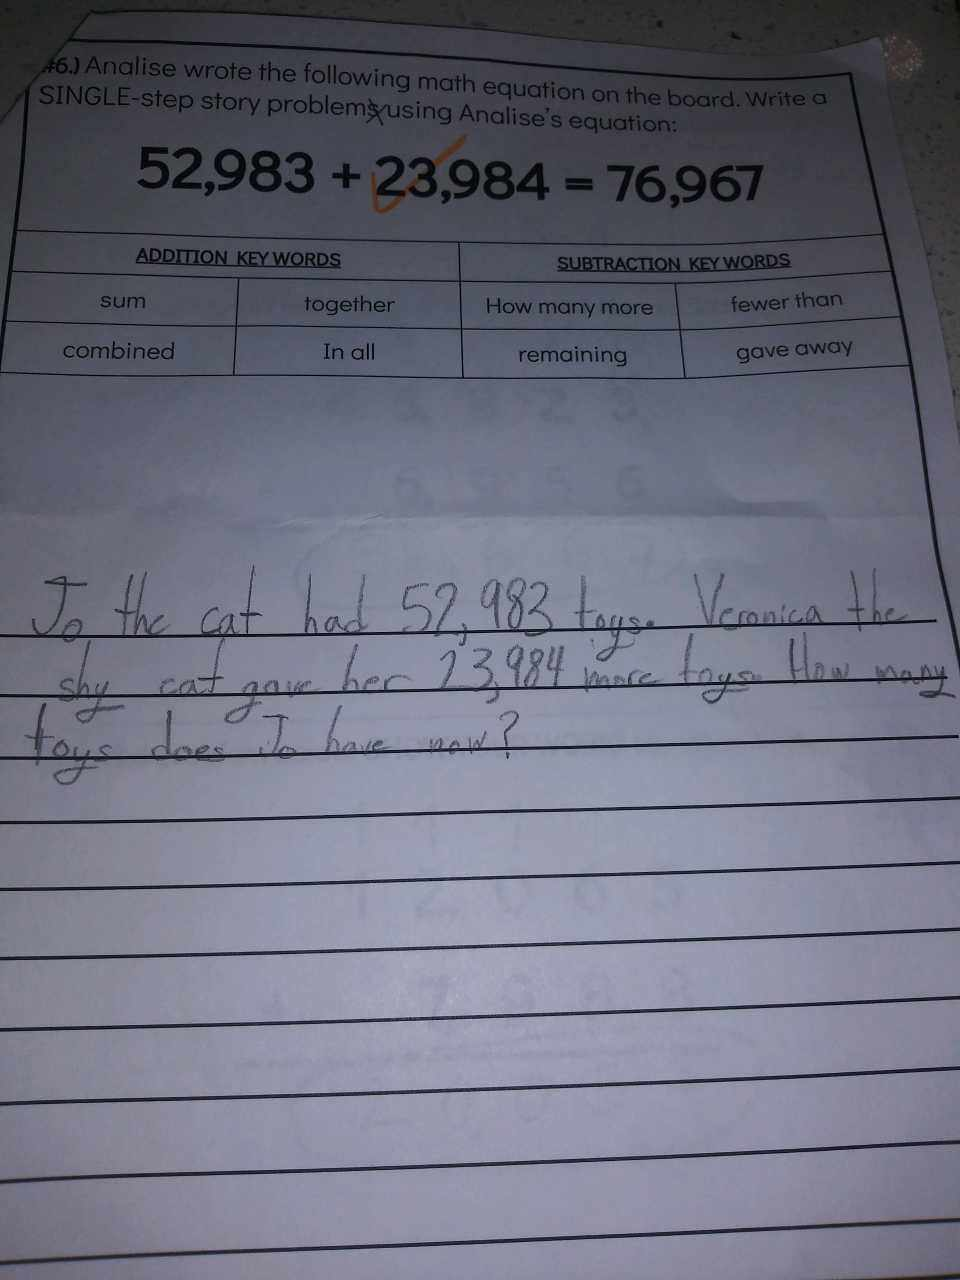 #6.) Analise wrote the following math equation on the board. Write a
SINGLE-step story problems using Analise's equation:
52,983 + 23,984 = 76,967
ADDITION KEY WORDS SUBTRACTION KEY WORDS
sum together How many more fewer than
combined In all remaining gave away
Jo the cat had 52,983 toys. Veronica the
shy cat gave her 23,984 more toys. How many
toys does Jo have now?